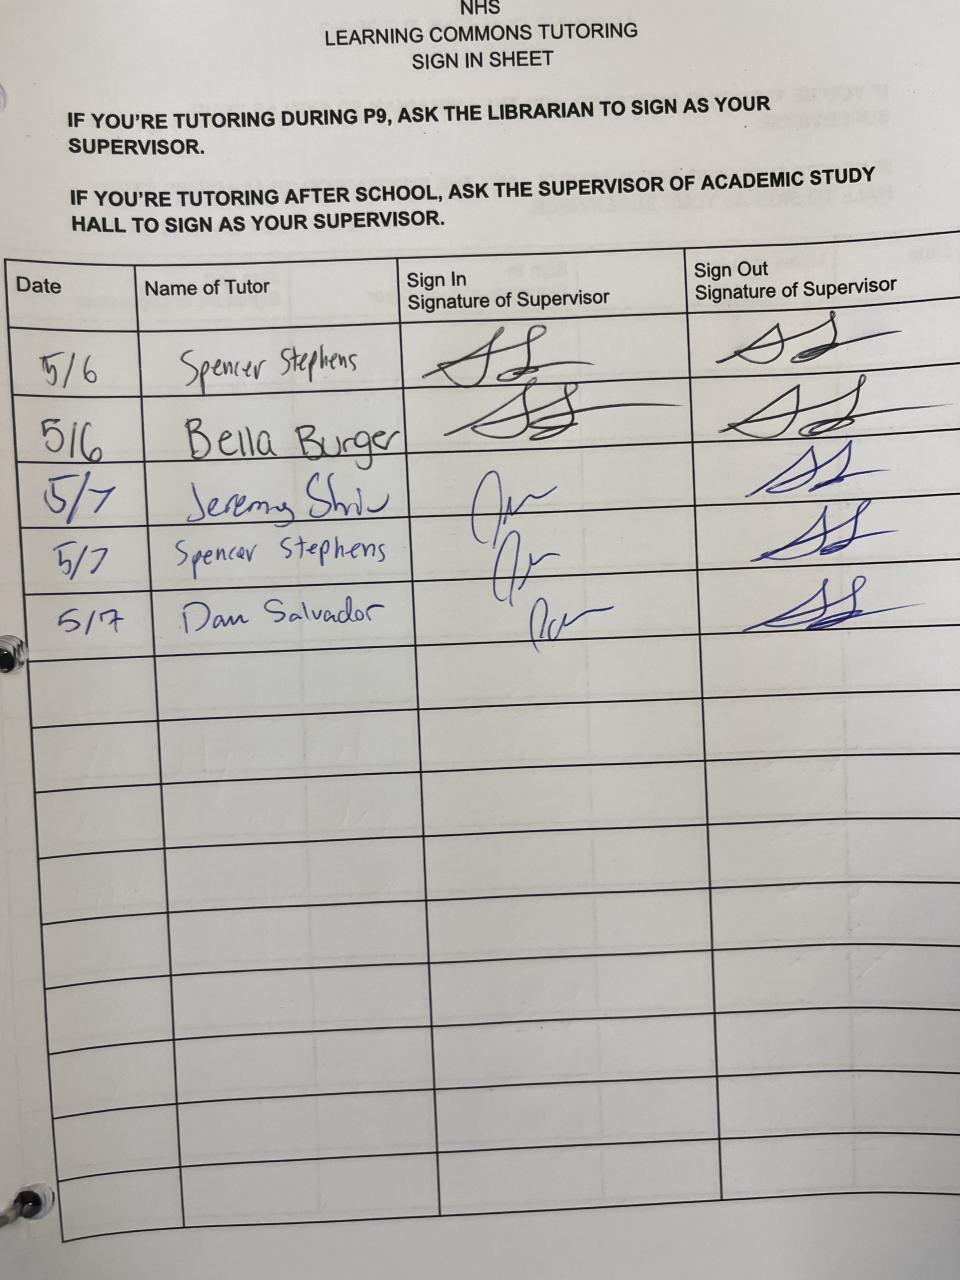 NHS
LEARNING COMMONS TUTORING
SIGN IN SHEET
IF YOU'RE TUTORING DURING P9, ASK THE LIBRARIAN TO SIGN AS YOUR
SUPERVISOR.
IF YOU'RE TUTORING AFTER SCHOOL, ASK THE SUPERVISOR OF ACADEMIC STUDY
HALL TO SIGN AS YOUR SUPERVISOR.
Date Name of Tutor Sign In Signature of Supervisor Sign Out Signature of Supervisor
5/6 Spencer Stephens
5/6 Bella Burger
5/7 Jeremy
5/7 Spencer Stephens
5/7 Dan Salvador